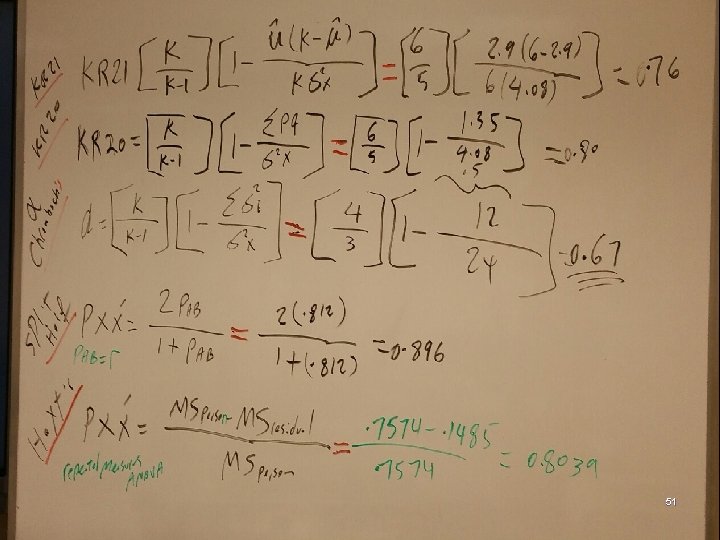 KR21 KR21 [K/K-1][1- û(K-û)/Kσ²x] = [6/5][2.9(6-2.9)/6(4.08)] = 0.76
KR20 KR20= [K/K-1][1- ΣPq/σ²x] = [6/5][1- 1.35/4.08] =0.80
.5
α Chronbach's α= [K/K-1][1- Σσ²i/σ²x] = [4/3][1- 12/24] =0.67
SPLIT Half PXX́= 2PAB/1+PAB = 2(.812)/1+(.812) =0.896
PAB=r
Hoyt's PXX́= MSperson-MSresidual/MSperson = .7574-.1485/.7574 = 0.8039
repeated measures ANOVA
51